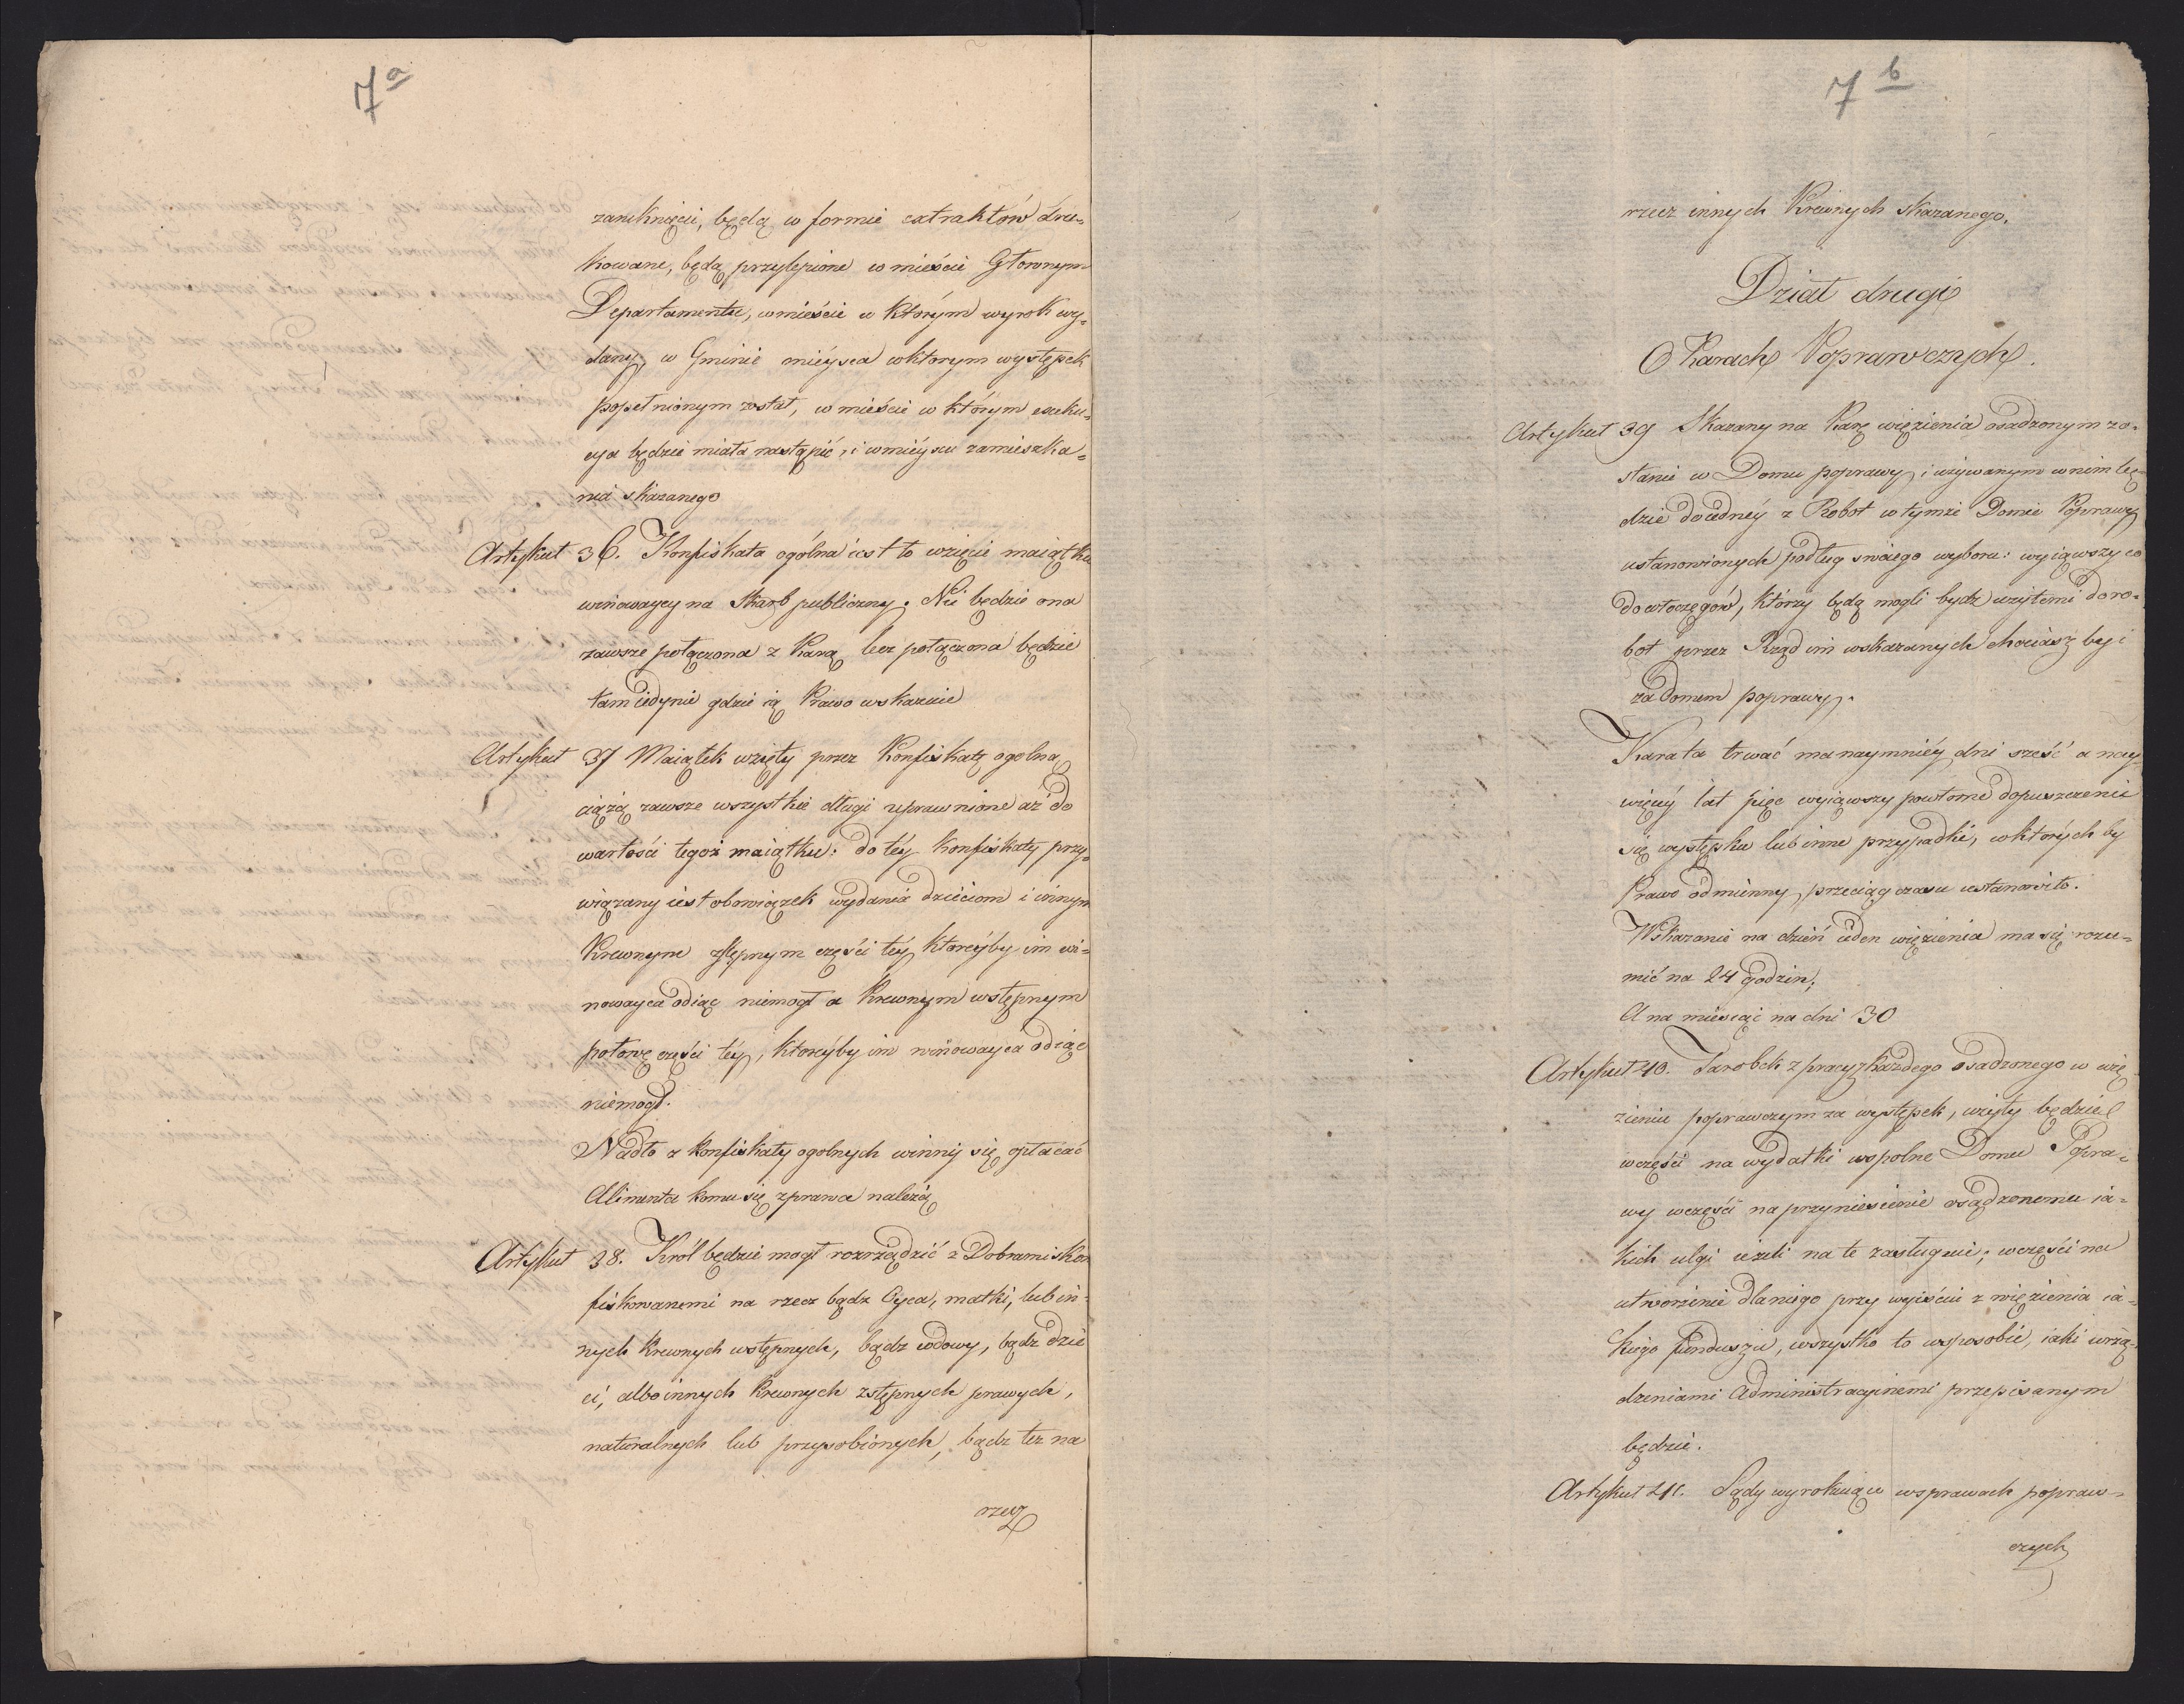 7a
zamknięci, będą w formie extraktów dru=
kowane, będą przylepione w mieście Głownym
Departamentu, w mieście w którym wyrok wy=
dany, w Gminie mieysca w ktorym występek
popełnionym został, w mieście w którym exeku=
cya będzie miała nastąpić, i w mieyscu zamieszka=
nia skazanego
Artykuł 36. Konfiskata ogólna iest to wzięcie maiątku
winowaycy na Skarb publiczny. Nie będzie ona
zawsze połączona z Karą lecz połączona będzie
tam iedynie gdzie ią Prawo wskazuie
Artykuł 37 Maiątek wzięty przez Konfiskatę ogolną
ciążą zawsze wszystkie długi uprawnione aż do
wartości tegoż maiątku: do téy Konfiskaty przy=
wiązany iest obowiązek wydania dzieciom i innym
Krewnym zstępnym części téy, ktoreyby im wi=
nowayca odiąć niemogł a Krewnym wstępnym
połowę części téy, ktoréyby im winowayca odiąć
niemogł.
Nadto z konfiskaty ogolnych winny się opłacać
Alimenta komu się z prawa należą
Artykuł 38. Król będzie mogł rozrządzić z Dobrami skon
fiskowanemi na rzecz bądz Oyca, matki, lub in=
nych Krewnych wstępnych, bądz wdowy, bądz dzie
ci, albo innych Krewnych zstępnych prawych,
naturalnych lub przysobionych, bądz też na
rzecz
7b
rzecz innych Krewnych skazanego.
Dział drugi
O Karach Poprawczych.
Artykuł 39 Skazany na Karę więzienia osadzonym zo=
stanie w Domu poprawy, i używanym w nim bę=
dzie do iednéy z Robot w tymże Domie Poprawy
ustanowionych podług swoiego wyboru: wyiąwszy co
do włoczęgow, którzy będą mogli bydz użytemi do ro=
bot przez Rząd im wskazanych chociaż by i
za Domem poprawy.
Kara ta trwać ma naymniéy dni sześć a nay=
więcéy lat pięc wyiąwszy powtorne dopuszczenie
się występku lub inne przypadki, w których by
Prawo odmienny przeciąg czasu ustanowiło.
Wskazanie na dzień ieden więzienia ma się rozu=
mić na 24 godzin;
A na miesiąc na dni 30
Artykuł 40. Zarobek z pracy każdego osadzonego w wię
zieniu poprawczym za występek, użyty będzie
w części na wydatki wspolne Domu Popra=
wy w części na przyniesienie osądzonemu ia=
kich ulgi ieżeli na te zasługuie; w części na
utworzenie dla niego przy wyiściu z więzienia ia=
kiego funduszu, wszystko to w sposobie, iaki urzą=
dzeniami Administracyinemi przepisanym
będzie.
Artykuł 41. Sądy wyrokuiące w sprawach popraw=
czych